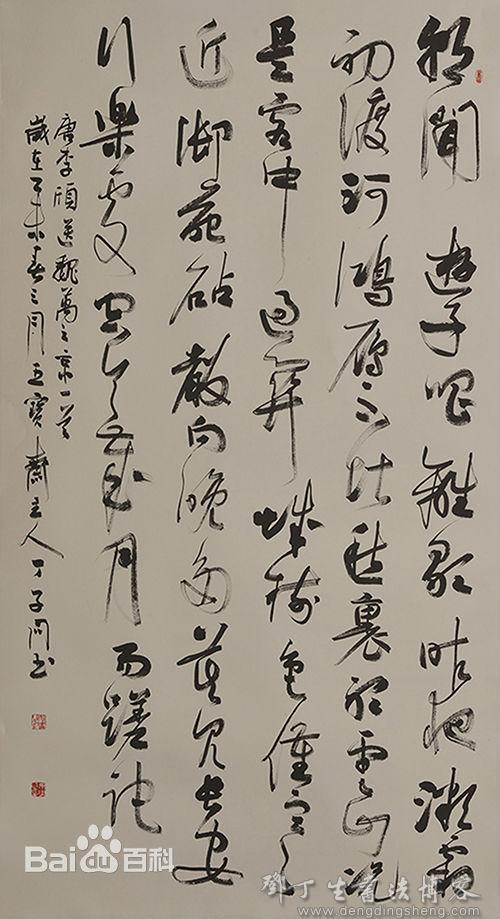 朝聞遊子唱離歌昨夜微霜
初渡河鴻雁不堪愁裏聽雲山況
是客中過關城樹色催寒
近御苑砧聲向晚多莫見長安
行樂處空令歲月易蹉跎
唐李頎送魏萬之京一首
歲在乙未春之月寶齋主人丁子問書
Bai du 百科
鄧丁生書法博客
www.dengdingsheng.com